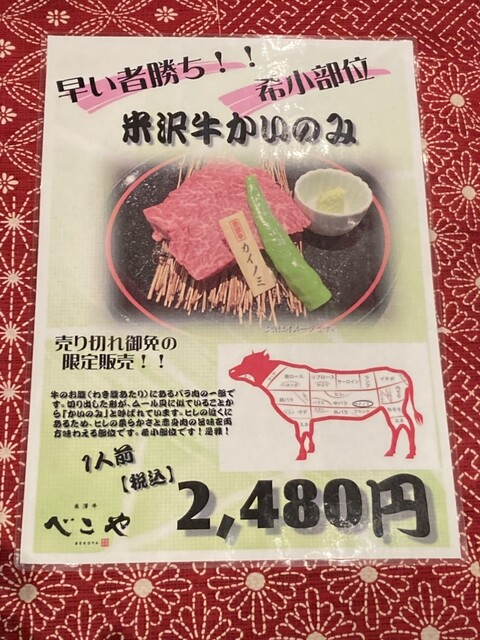 早い者勝ち！！
希小部位
米沢牛かいのみ
カイノミ
※写真はイメージです。
売り切れ御免の
限定販売！！
牛のお腹（わき腹あたり）にあるバラ肉の一部で
す。切り出した形が、ムール貝に似ていることか
ら「かいのみ」と呼ばれています。ヒレの近くに
あるため、ヒレの柔らかさと赤身肉の旨味を両
方味わえる部位です。希小部位です！是非！
肩ロース
リブロース
サーロイン
イチボ
1人前
【税込】
2,480円
米澤牛
べこや
BEKOYA